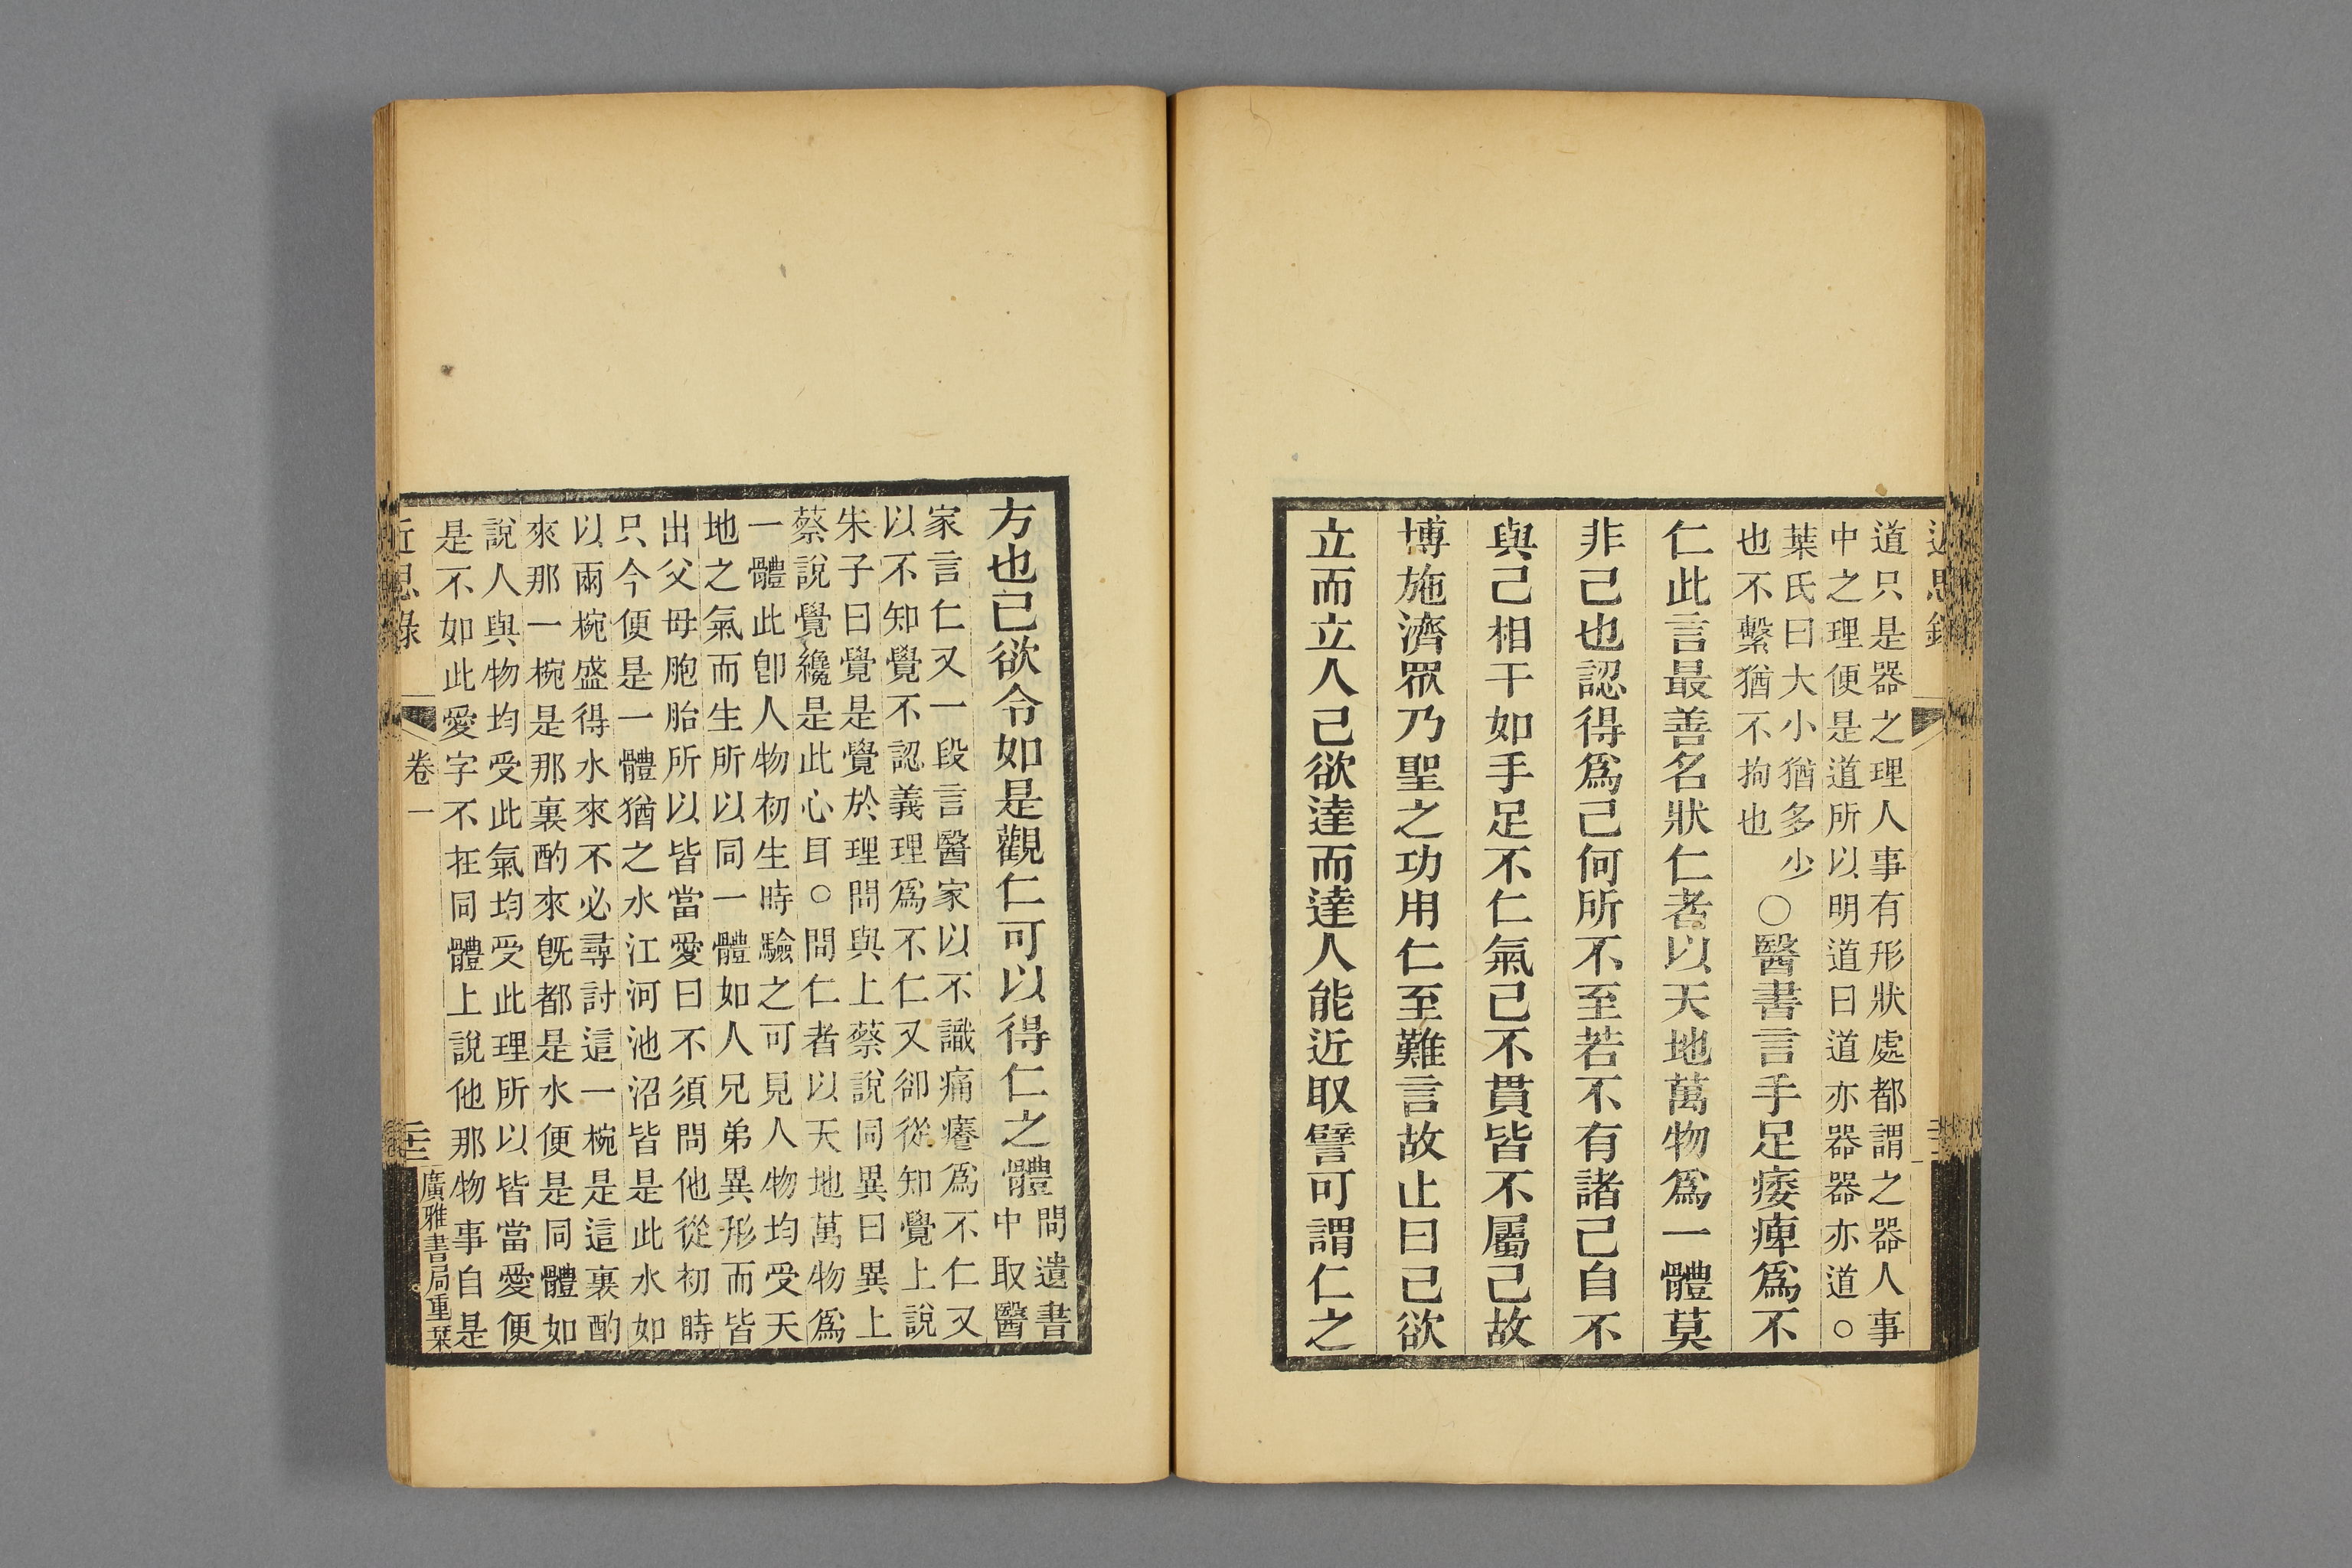 道只是器之理人事有形狀處都謂之器人事
中之理便是道所以明道曰道亦器器亦道○
葉氏曰大小猶多少
也不繫猶不拘也
○醫書言手足痿痺爲不
仁此言最善名狀仁者以天地萬物爲一體莫
非己也認得爲己何所不至若不有諸己自不
與己相干如手足不仁氣已不貫皆不屬己故
博施濟眾乃聖之功用仁至難言故止曰己欲
立而立人己欲達而達人能近取譬可謂仁之
方也已欲令如是觀仁可以得仁之體
問遺書
中取醫
家言仁又一段言醫家以不識痛癢爲不仁又
以不知覺不認義理爲不仁又卻從知覺上說
朱子曰覺是覺於理問與上蔡說同異曰異上
蔡說覺纔是此心耳○問仁者以天地萬物爲
一體此卽人物初生時驗之可見人物均受天
地之氣而生所以同一體如人兄弟異形而皆
出父母胞胎所以皆當愛曰不須問他從初時
只今便是一體猶之水江河池沼皆是此水如
以兩椀盛得水來不必尋討這一椀是這裏酌
來那一椀是那裏酌來旣都是水便是同體如
說人與物均受此氣均受此理所以皆當愛便
是不如此愛字不在同體上說他那物事自是
近思錄
卷一
廣雅書局重栞